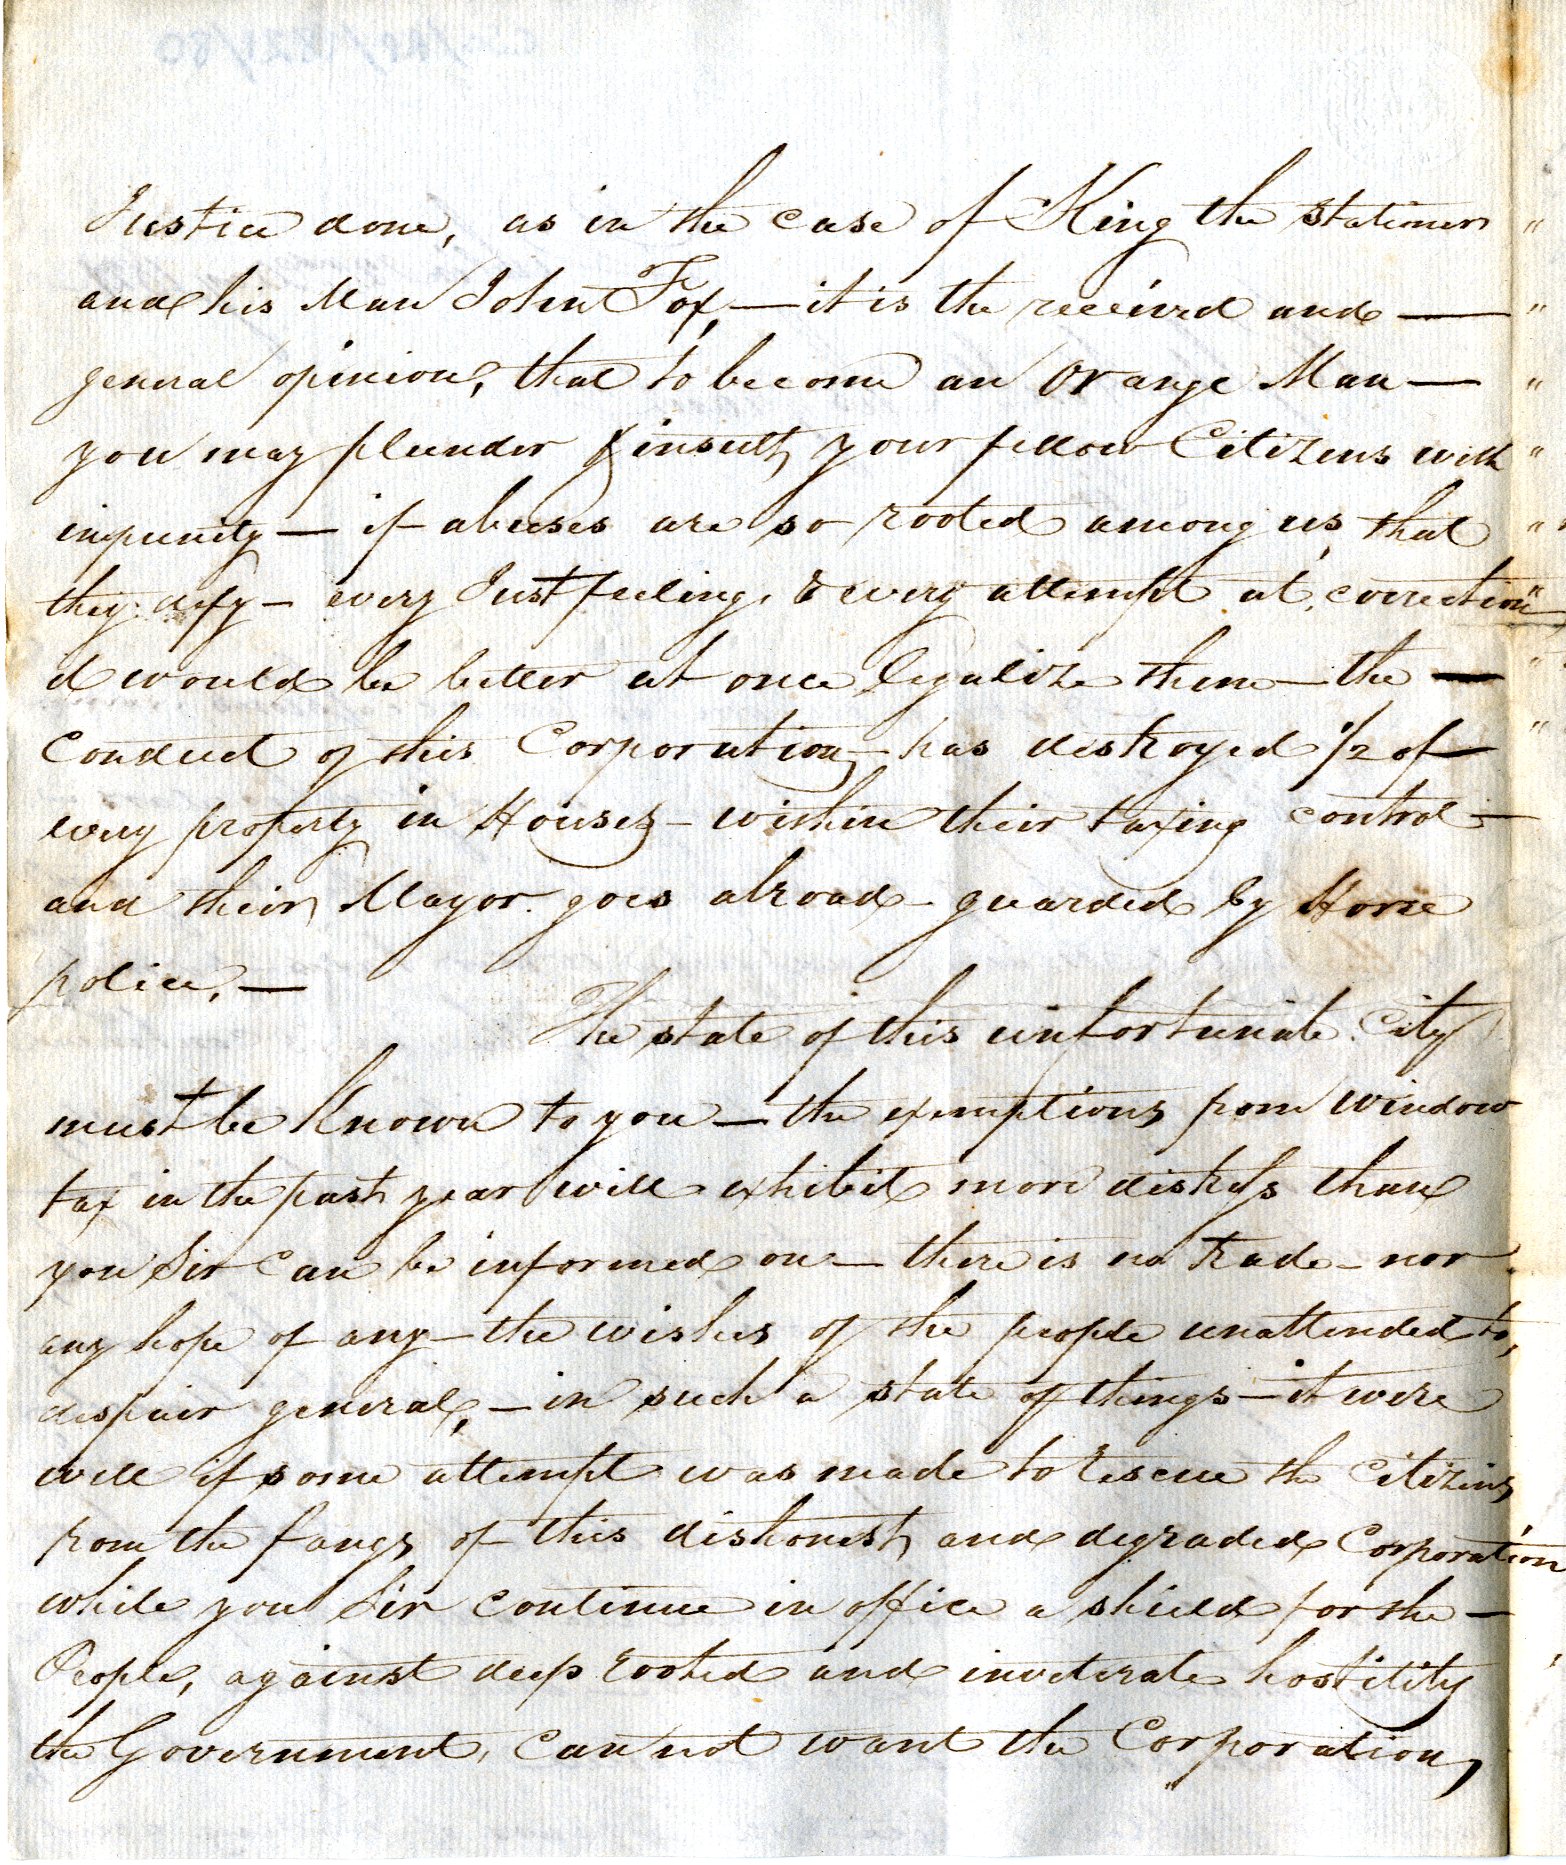 Justice done, as in the case of King the Stationer
and his Man John Fox, — it is the received and —
general opinion, that to become an Orange Man —
you may plunder & insult, your fellow Citizens with
impunity — if abuses are so rooted among us, that
they defy — every Just feeling, & every attempt at correction
it would be better at once legalize them — the —
Conduct of this Corporation, has destroyed 1/2 of
every property in Houses — within their taxing control —
and their Mayor goes abroad — guarded by Horse
police, —
The state of this unfortunate City
must be known to you — the exemptions from window
tax in the past year will exhibit more distress than
you Sir can be informed on — there is no trade — nor
any hope of any — the wishes of the people unattended to,
despair general, — in such a state of things — it were
well if some attempt was made to rescue the Citizens
from the fangs of this dishonest, and degraded Corporation
while you Sir continue in office a shield for the —
People, against deep rooted and inveterate hostility
the Government, can not want the Corporation,